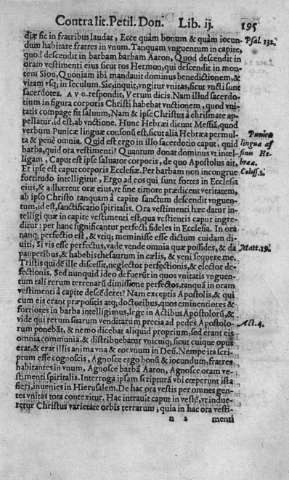 Contra lit. Petil. Don. Lib. ij. 195
diæ sic in fratribus laudat, Ecce quàm bonum & quàm iocun-
dum habitare fratres in vnum. Tanquam vnguentum in capite,
quod descendit in barbam barbam Aaron, Quod descendit in
oram vestimenti eius sicut ros Hermon, qui descendit in mon-
tem Sion, Quoniam ibi mandauit dominus benedictionem, &
vitam vsq; in seculum. Sic inquit, vngitur vnitas, sicut vncti sunt
sacerdotes. A v g. respondit, Verum dicis. Nam illud sacerdo-
tium in figura corporis Christi habebat vnctionem, quod vni-
tatis compage fit saluum, Nam & ipse Christus à chrismate ap-
pellatur, id est, ab vnctione. Hunc Hebræi dicunt Messiã, quod
verbum Punicæ linguæ consonũ est, sicut alia Hebræa permul-
ta & penè omnia. Quid est ergo in illo sacerdotio caput, quid
barba, quid ora vestimenti? Quantum donat dominus vt intel-
ligam, Caput est ipse saluator corporis, de quo Apostolus ait,
Et ipse est caput corporis Ecclesiæ. Per barbam non incongruè
fortitudo intelligitur, Ergo ad eos qui sunt fortes in Ecclesia
eius, & adhærent oræ eius, vt sine timore prædicent veritatem,
ab ipso Christo tanquam à capite sanctum descendit vnguen-
tum, id est, sanctificatio spiritalis. Ora vestimenti hæc datur in-
telligi quæ in capite vestimenti est, qua vestientis caput ingre-
ditur: per hanc significantur perfecti fideles in Ecclesia. In ora
nanq; perfectio est, & vtiq; meminisse esse dictum cuidam di-
uiti, Si vis esse perfectus, vade vende omnia quæ possides, & da
pauperibus, & habebis thesaurum in cælis, & veni sequere me.
Tristis quidẽ ille discessit, neglector perfectionis, & elector de-
fectionis, Sed nunquid ideo defuerũt in quos vnitatis vnguen-
tum tali rerum terrenarũ dimissione perfectos, tanquã in oram
vestimenti à capite descẽderet? Nam exceptis Apostolis, & qui
cum eis erant præpositis atq; doctoribus, quos eminentiores &
fortiores in barba intelligimus, lege in Actibus Apostolorũ, &
vide qui rerum suarum venditarum precia ad pedes Apostolo-
rum ponebãt, & nemo dicebat aliquid proprium, sed erant eis
omnia communia, & distribuebatur vnicuiq; sicut cuique opus
erat, & erat illis anima vna & cor vnum in Deũ. Nempe ita scri-
ptum esse cognoscis, Agnosce ergo quàm bonũ & iocundum, fratres
habitare in vnum, Agnosce barbã Aaron, Agnosce oram ve-
stimenti spiritalis. Interroga ipsam scripturã vbi cœperunt ista
fieri, inuenies in Hierusalem. De hac ora vestis per omnes gen-
tes vnitas tota contexitur. Hac intrauit caput in vestẽ, vt indue-
retur Christus varietate orbis terrarum, quia in hac ora vesti-
n 2 menti
Psal. 132.
Punica
lingua af
finis He-
brææ.
Coloss. 1.
Matt. 19.
Act. 4.